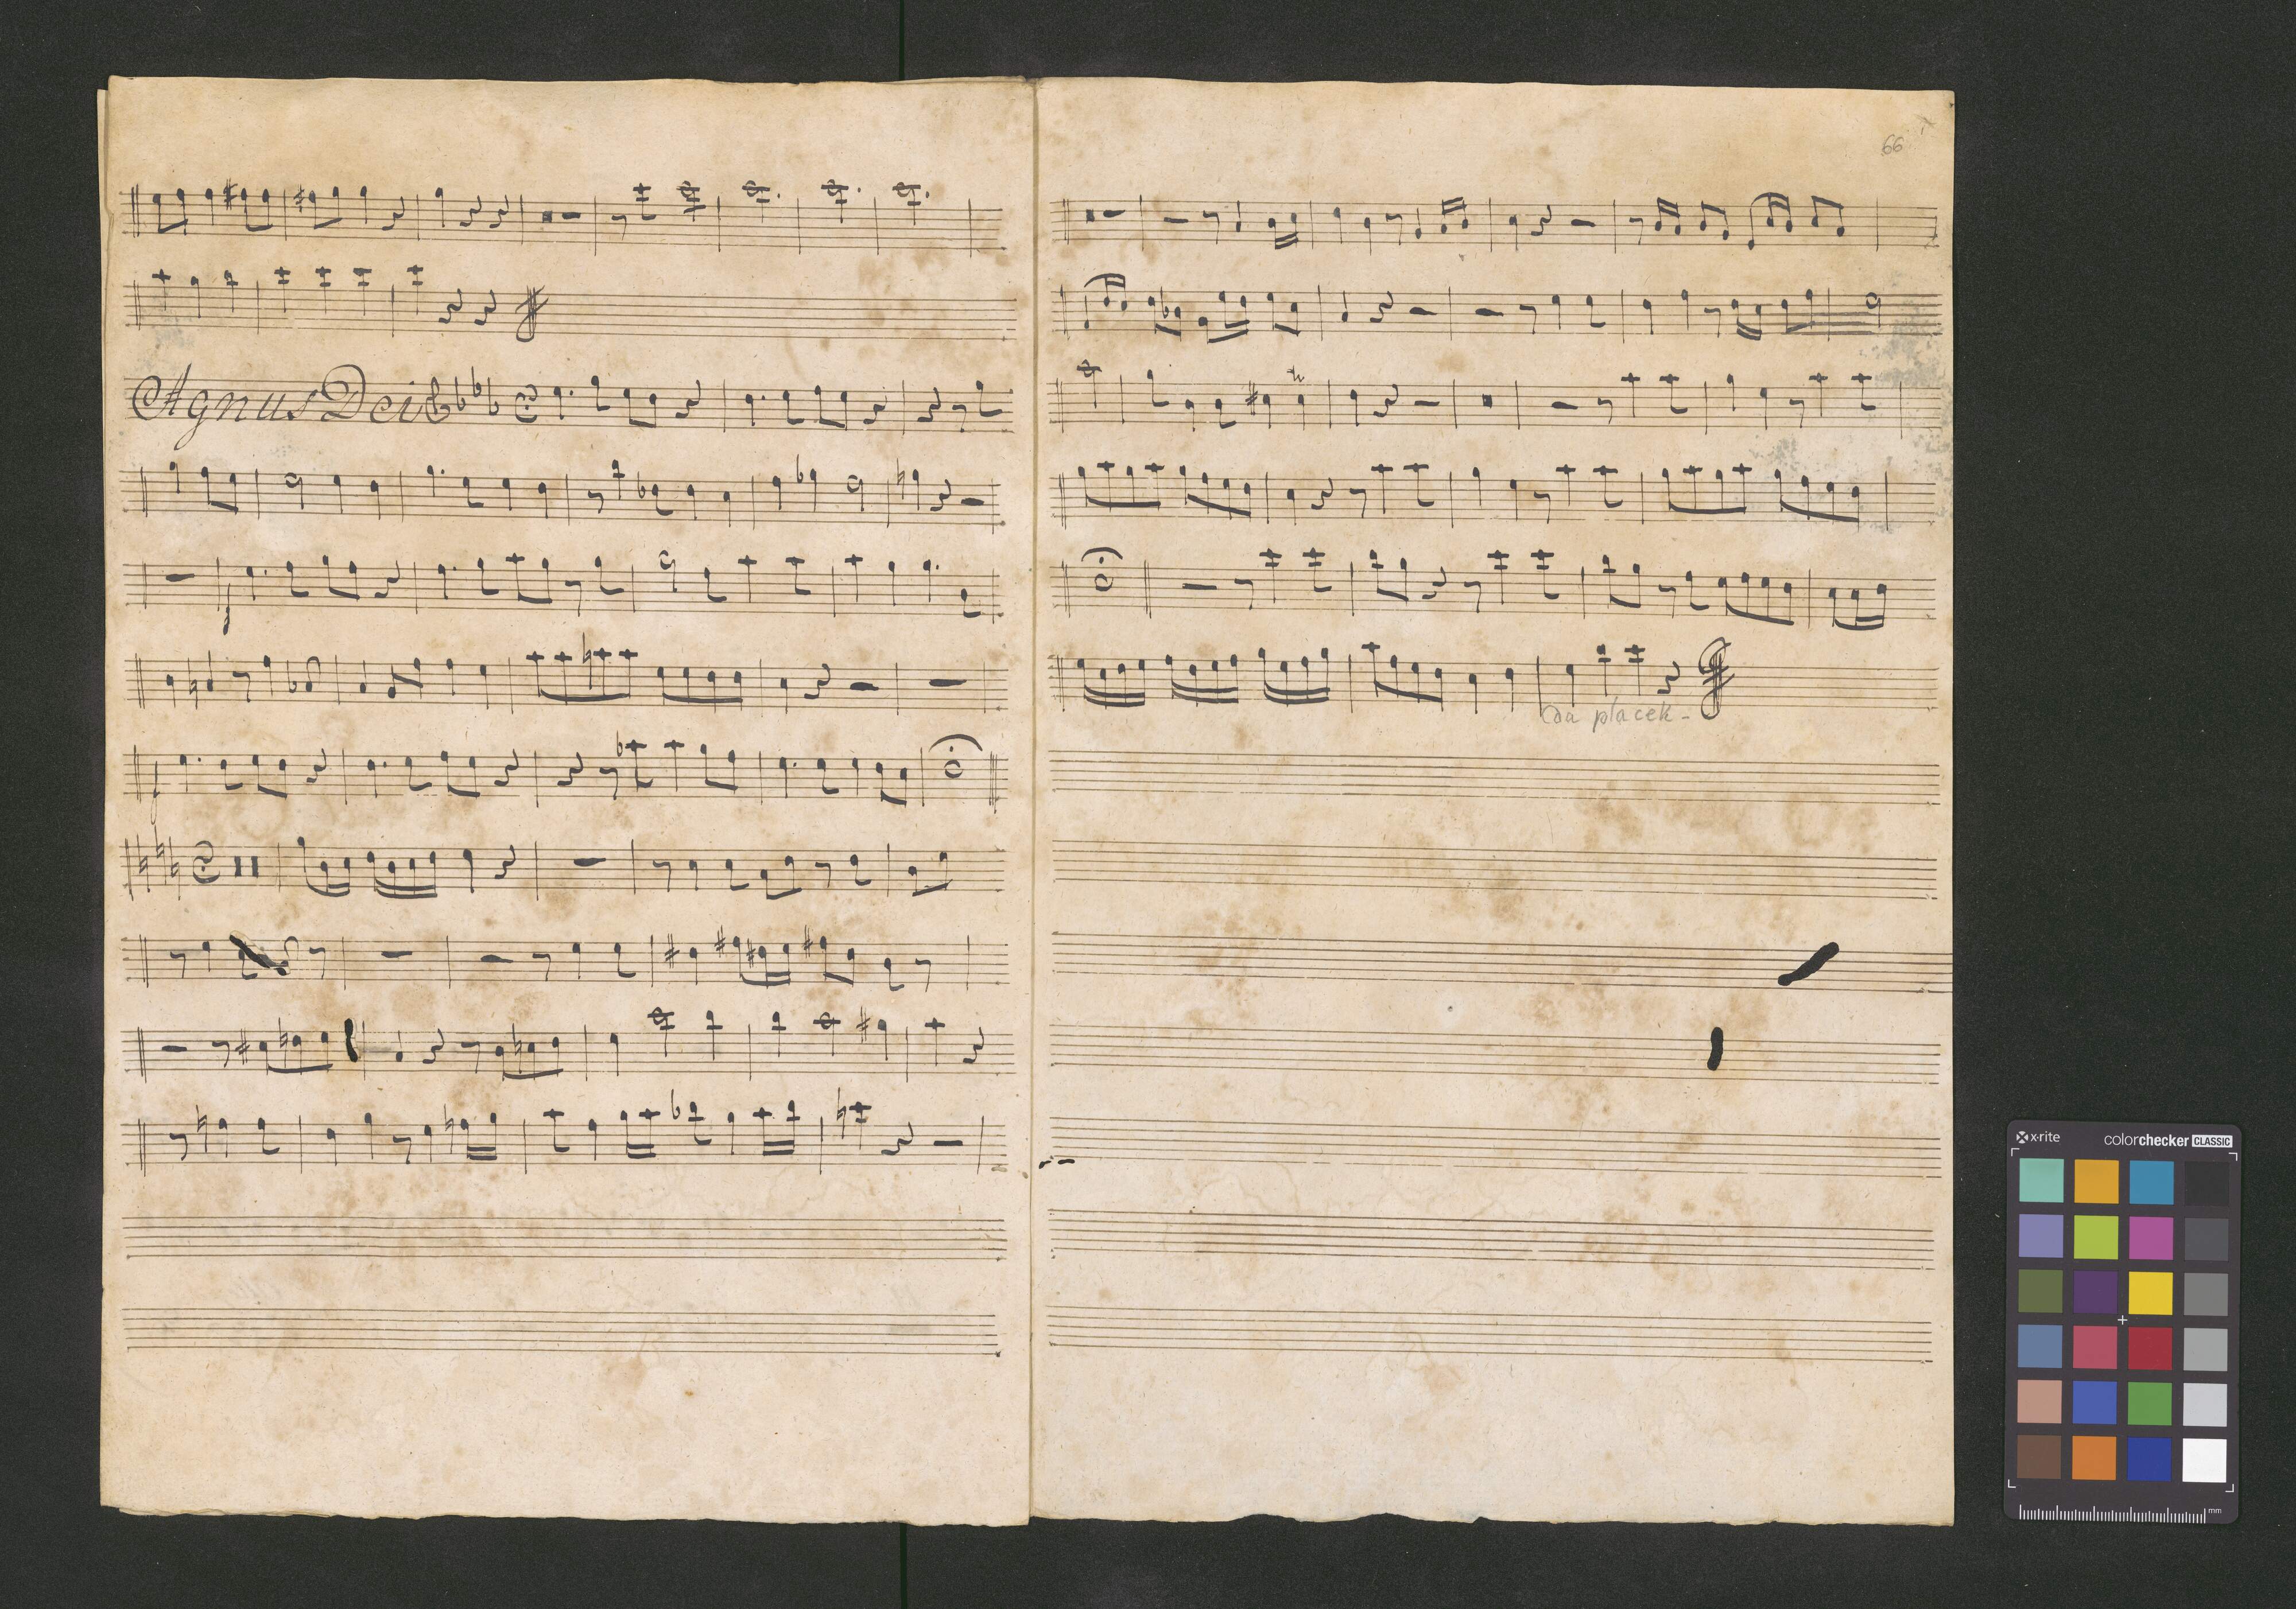 Agnus Dei
66
da placek -
x-rite
colorchecker CLASSIC
mm